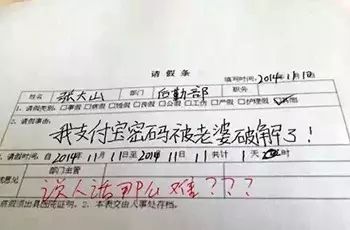 请假条
填写时间：2014年11月1日
姓名 张大山 部门 后勤部 职务
1、请假类别：□事假 □病假 □婚假 □丧假 □公假 □工伤 □产假 □护理假 □其他
2、请假事由：
我支付宝密码被老婆破解了！
3、请假时间：自2014年11月11日至2014年11月11日共计1天 时
部门主管
说人话那么难？？？
2、本表交由人事处存档。